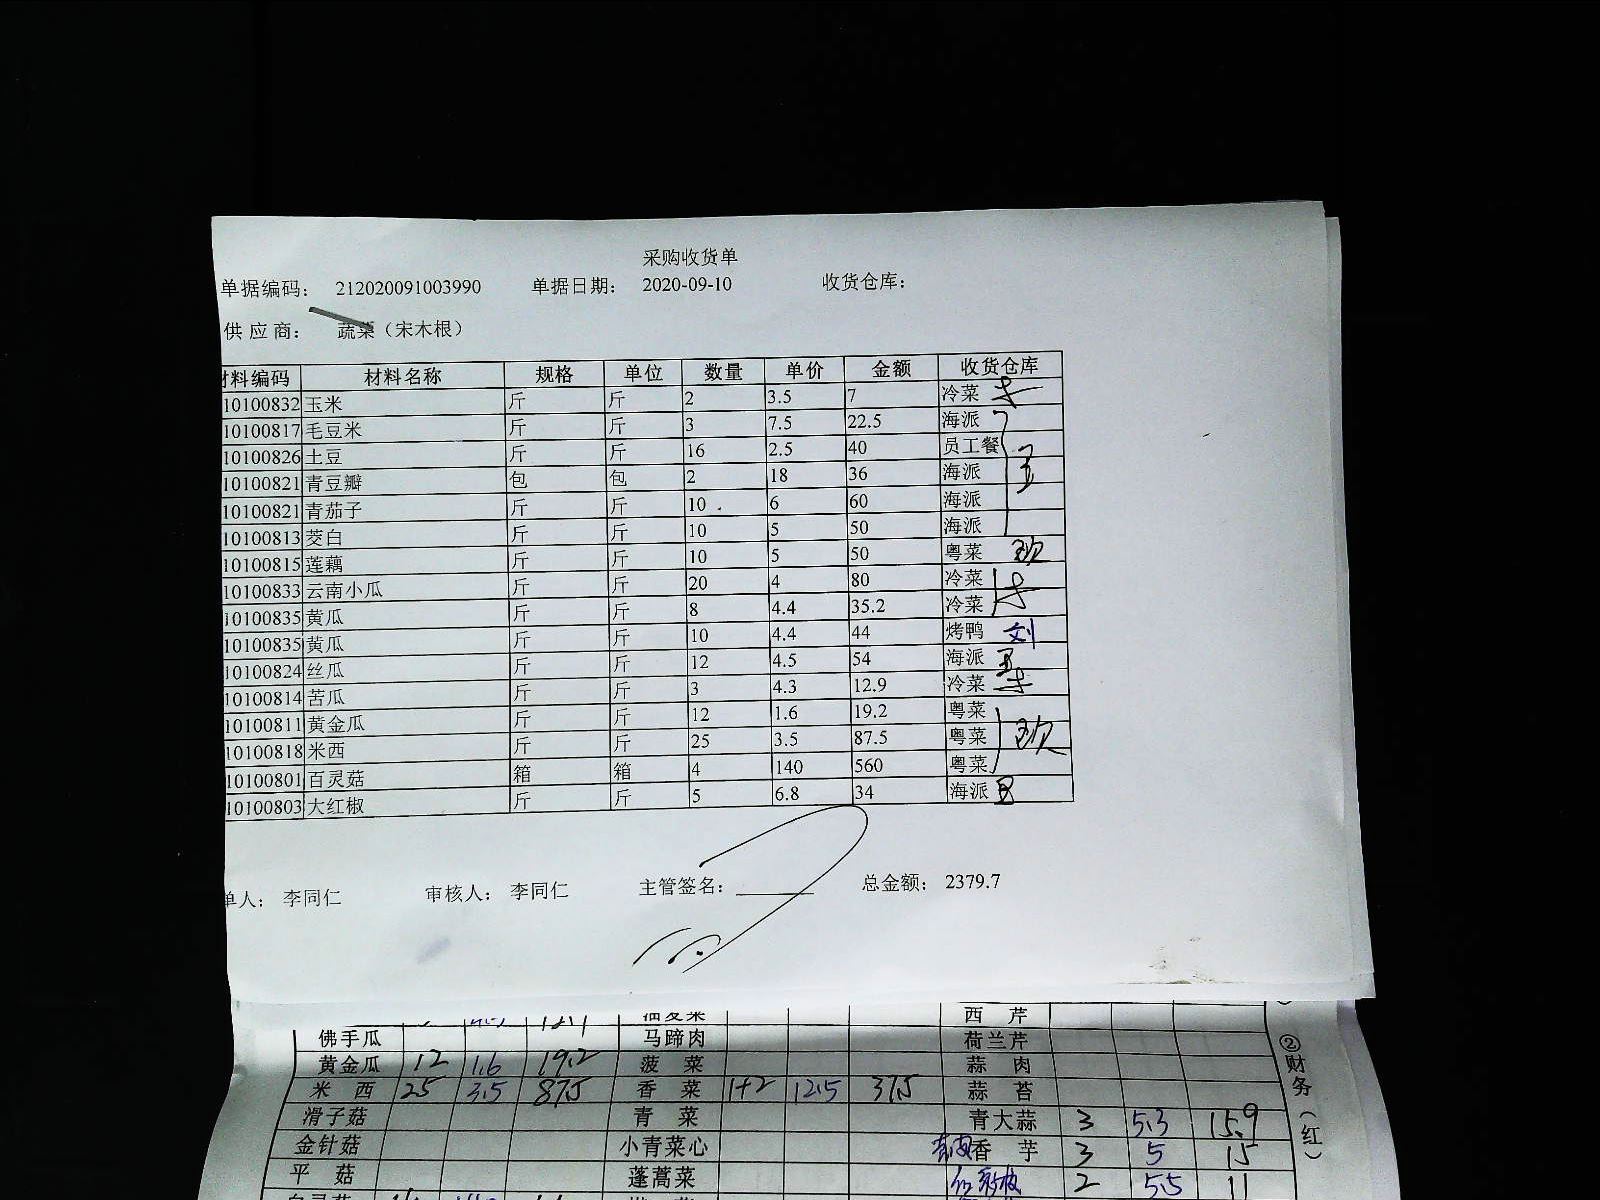 采购收货单
单据编码： 212020091003990 单据日期： 2020-09-10 收货仓库：
供应商： 蔬菜（宋木根）
材料编码 材料名称 规格 单位 数量 单价 金额 收货仓库
10100832 玉米 斤 斤 2 3.5 7 冷菜
10100817 毛豆米 斤 斤 3 7.5 22.5 海派
10100826 土豆 斤 斤 16 2.5 40 员工餐
10100821 青豆瓣 包 包 2 18 36 海派
10100821 青茄子 斤 斤 10 6 60 海派
10100813 茭白 斤 斤 10 5 50 海派
10100815 莲藕 斤 斤 10 5 50 粤菜
10100833 云南小瓜 斤 斤 20 4 80 冷菜
10100835 黄瓜 斤 斤 8 4.4 35.2 冷菜
10100835 黄瓜 斤 斤 10 4.4 44 烤鸭 刘
10100824 丝瓜 斤 斤 12 4.5 54 海派
10100814 苦瓜 斤 斤 3 4.3 12.9 冷菜
10100811 黄金瓜 斤 斤 12 1.6 19.2 粤菜
10100818 米西 斤 斤 25 3.5 87.5 粤菜
10100801 百灵菇 箱 箱 4 140 560 粤菜
10100803 大红椒 斤 斤 5 6.8 34 海派
单人： 李同仁 审核人： 李同仁 主管签名： 总金额： 2379.7
油麦菜 西芹
佛手瓜 马蹄肉 荷兰芹
黄金瓜 12 1.6 19.2 菠菜 蒜肉
米西 25 3.5 87.5 香菜 1+2 12.5 37.5 蒜苔
滑子菇 青菜 青大蒜 3 5.3 15.9
金针菇 小青菜心 香芋 3 5 15
平菇 蓬蒿菜 2 5.5 11
②财务（红）